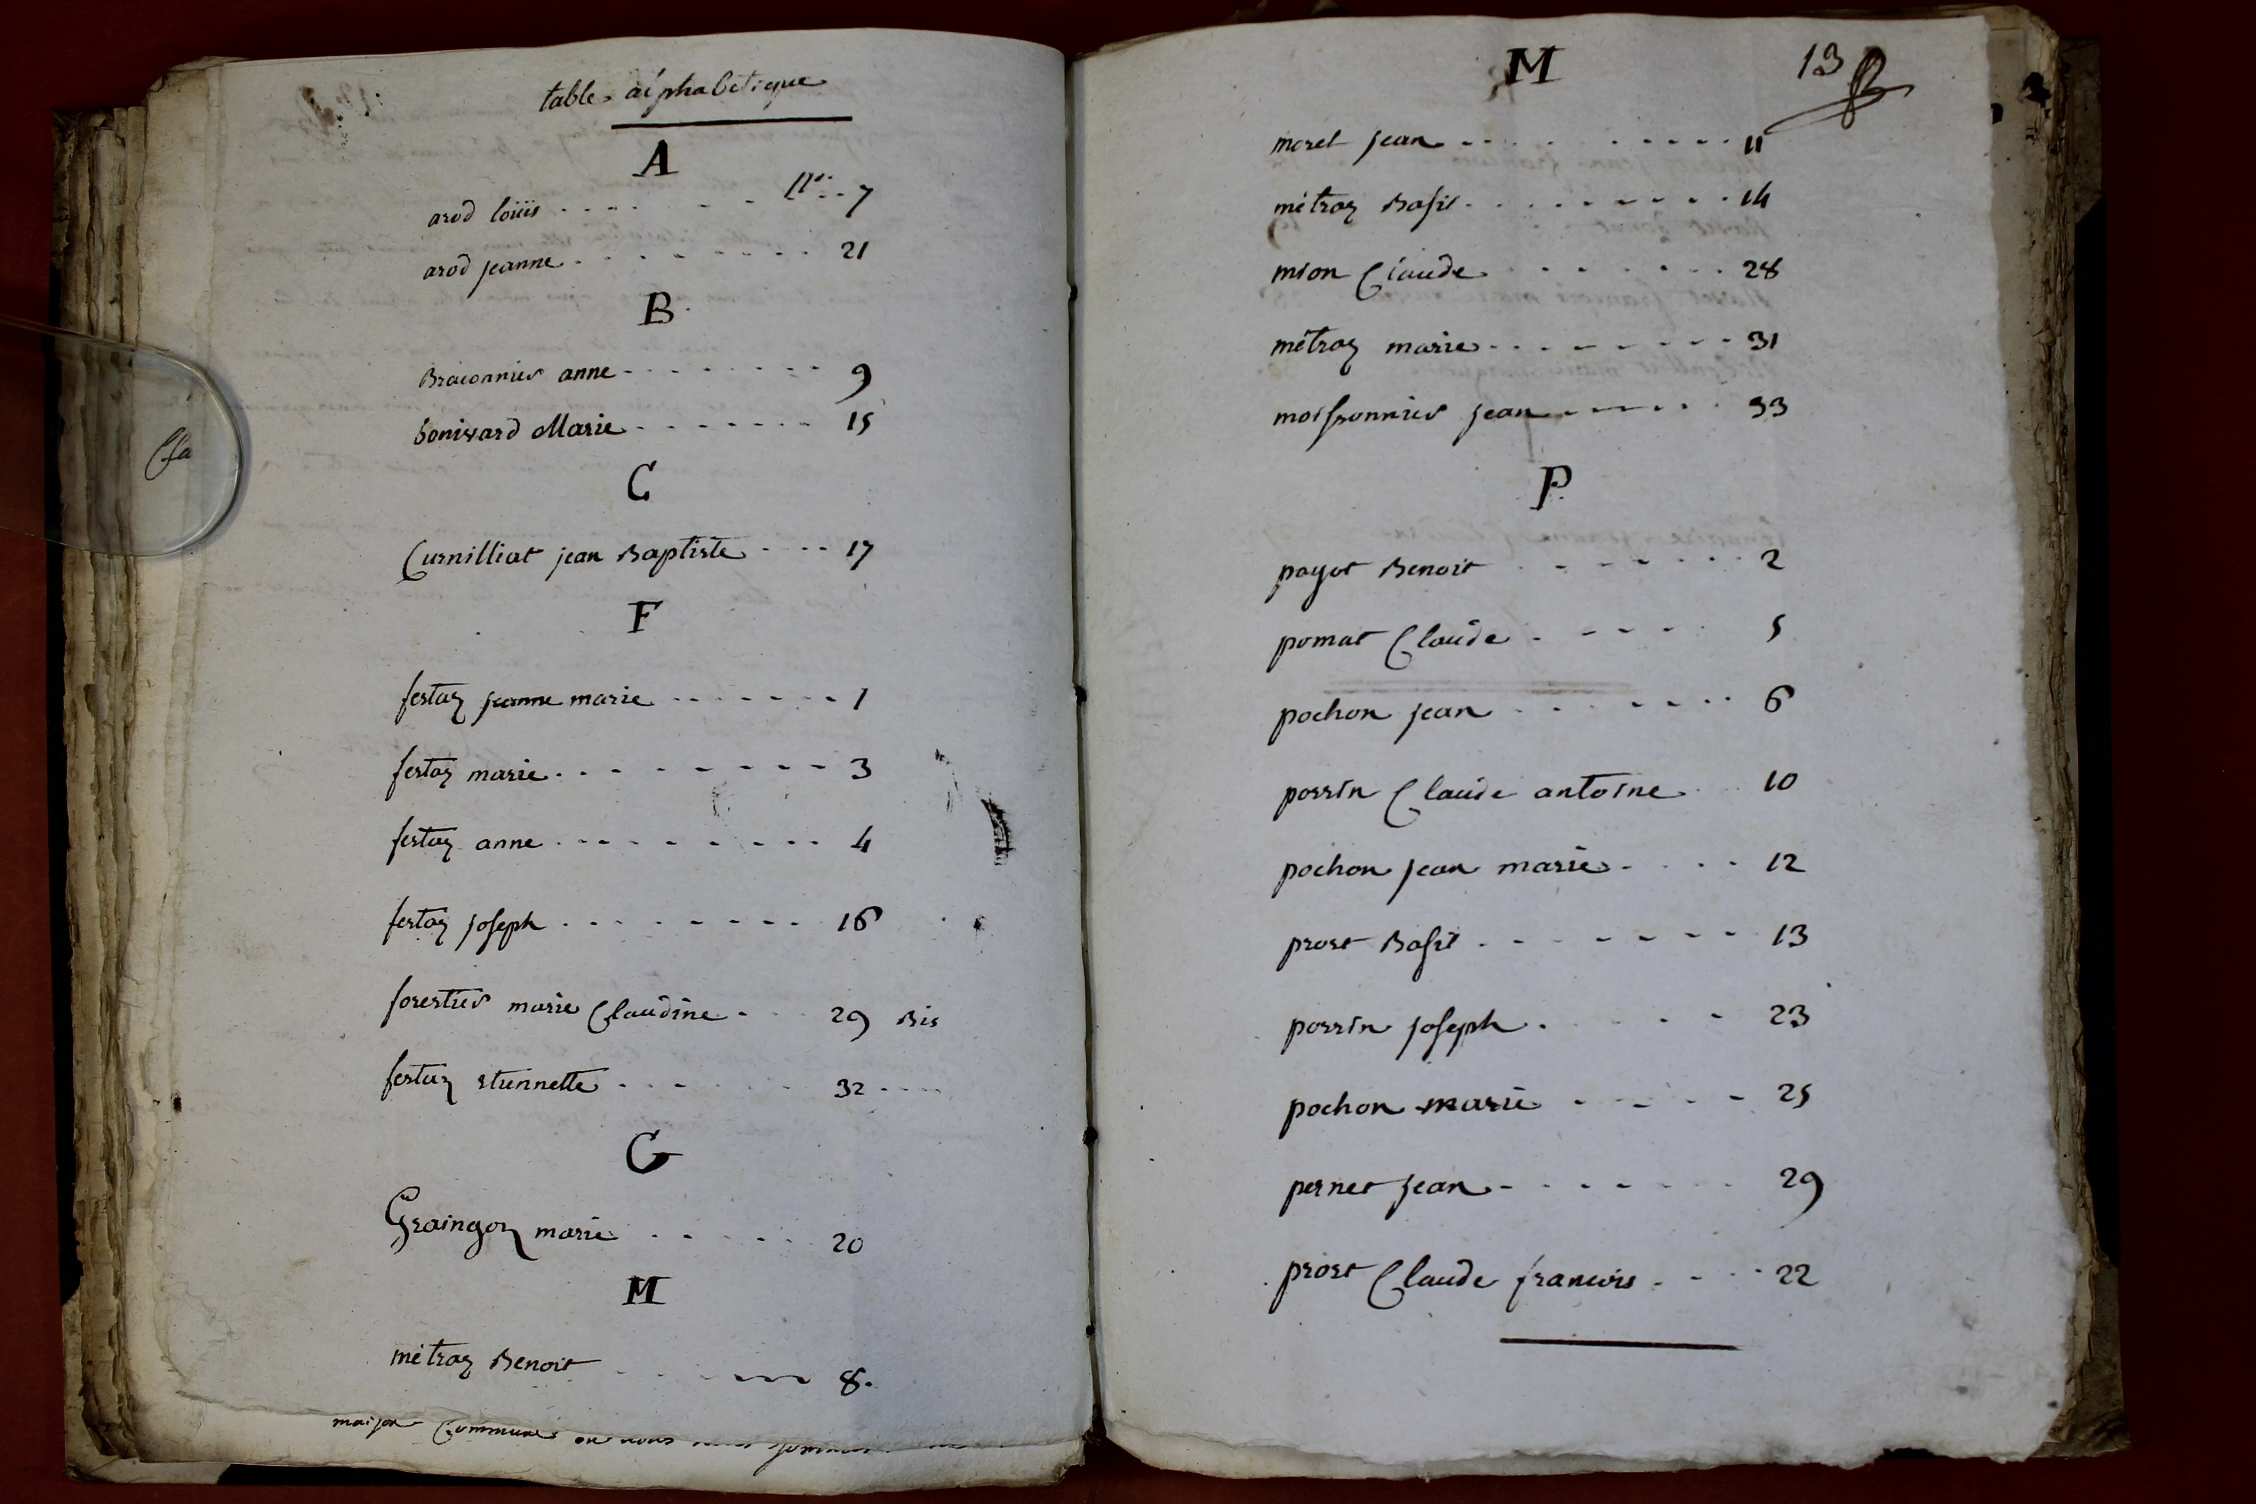 table alphabetique
A
arod loüis - - - - - - - N° - - 7
arod jeanne - - - - - - - - 21
B
Braconnier anne - - - - - - - - 9
bonivard Marie - - - - - - - 15
C
Curnilliat jean Baptiste - - - - 17
F
fertaz jeanne marie - - - - - - - 1
fertaz marie - - - - - - - - 3
fertaz anne - - - - - - - - - 4
fertaz joseph - - - - - - - - 16
forestier marie Claudine - - - 29 Bis
fertaz etiennette - - - - - 32 - - -
G
Graingoz marie - - - - - - 20
M
métraz Benoit - - - - - - - 8.
maison Commune ou nous sommes
M
13
morel jean - - - - - - - - - 11
métraz Basil - - - - - - - - - 14
mion Claude - - - - - - - 28
métraz marie - - - - - - - - 31
moissonnier jean - - - - - - 33
P
payot Benoit - - - - - - - 2
pomat Claude - - - - - 5
pochon jean - - - - - - - 6
perrin Claude antoine - - 10
pochon jean marie - - - - 12
prost Basil - - - - - - - 13
perrin joseph - - - - - 23
pochon marie - - - - - 25
pernet jean - - - - - - - 29
prost Claude francois - - - - 22